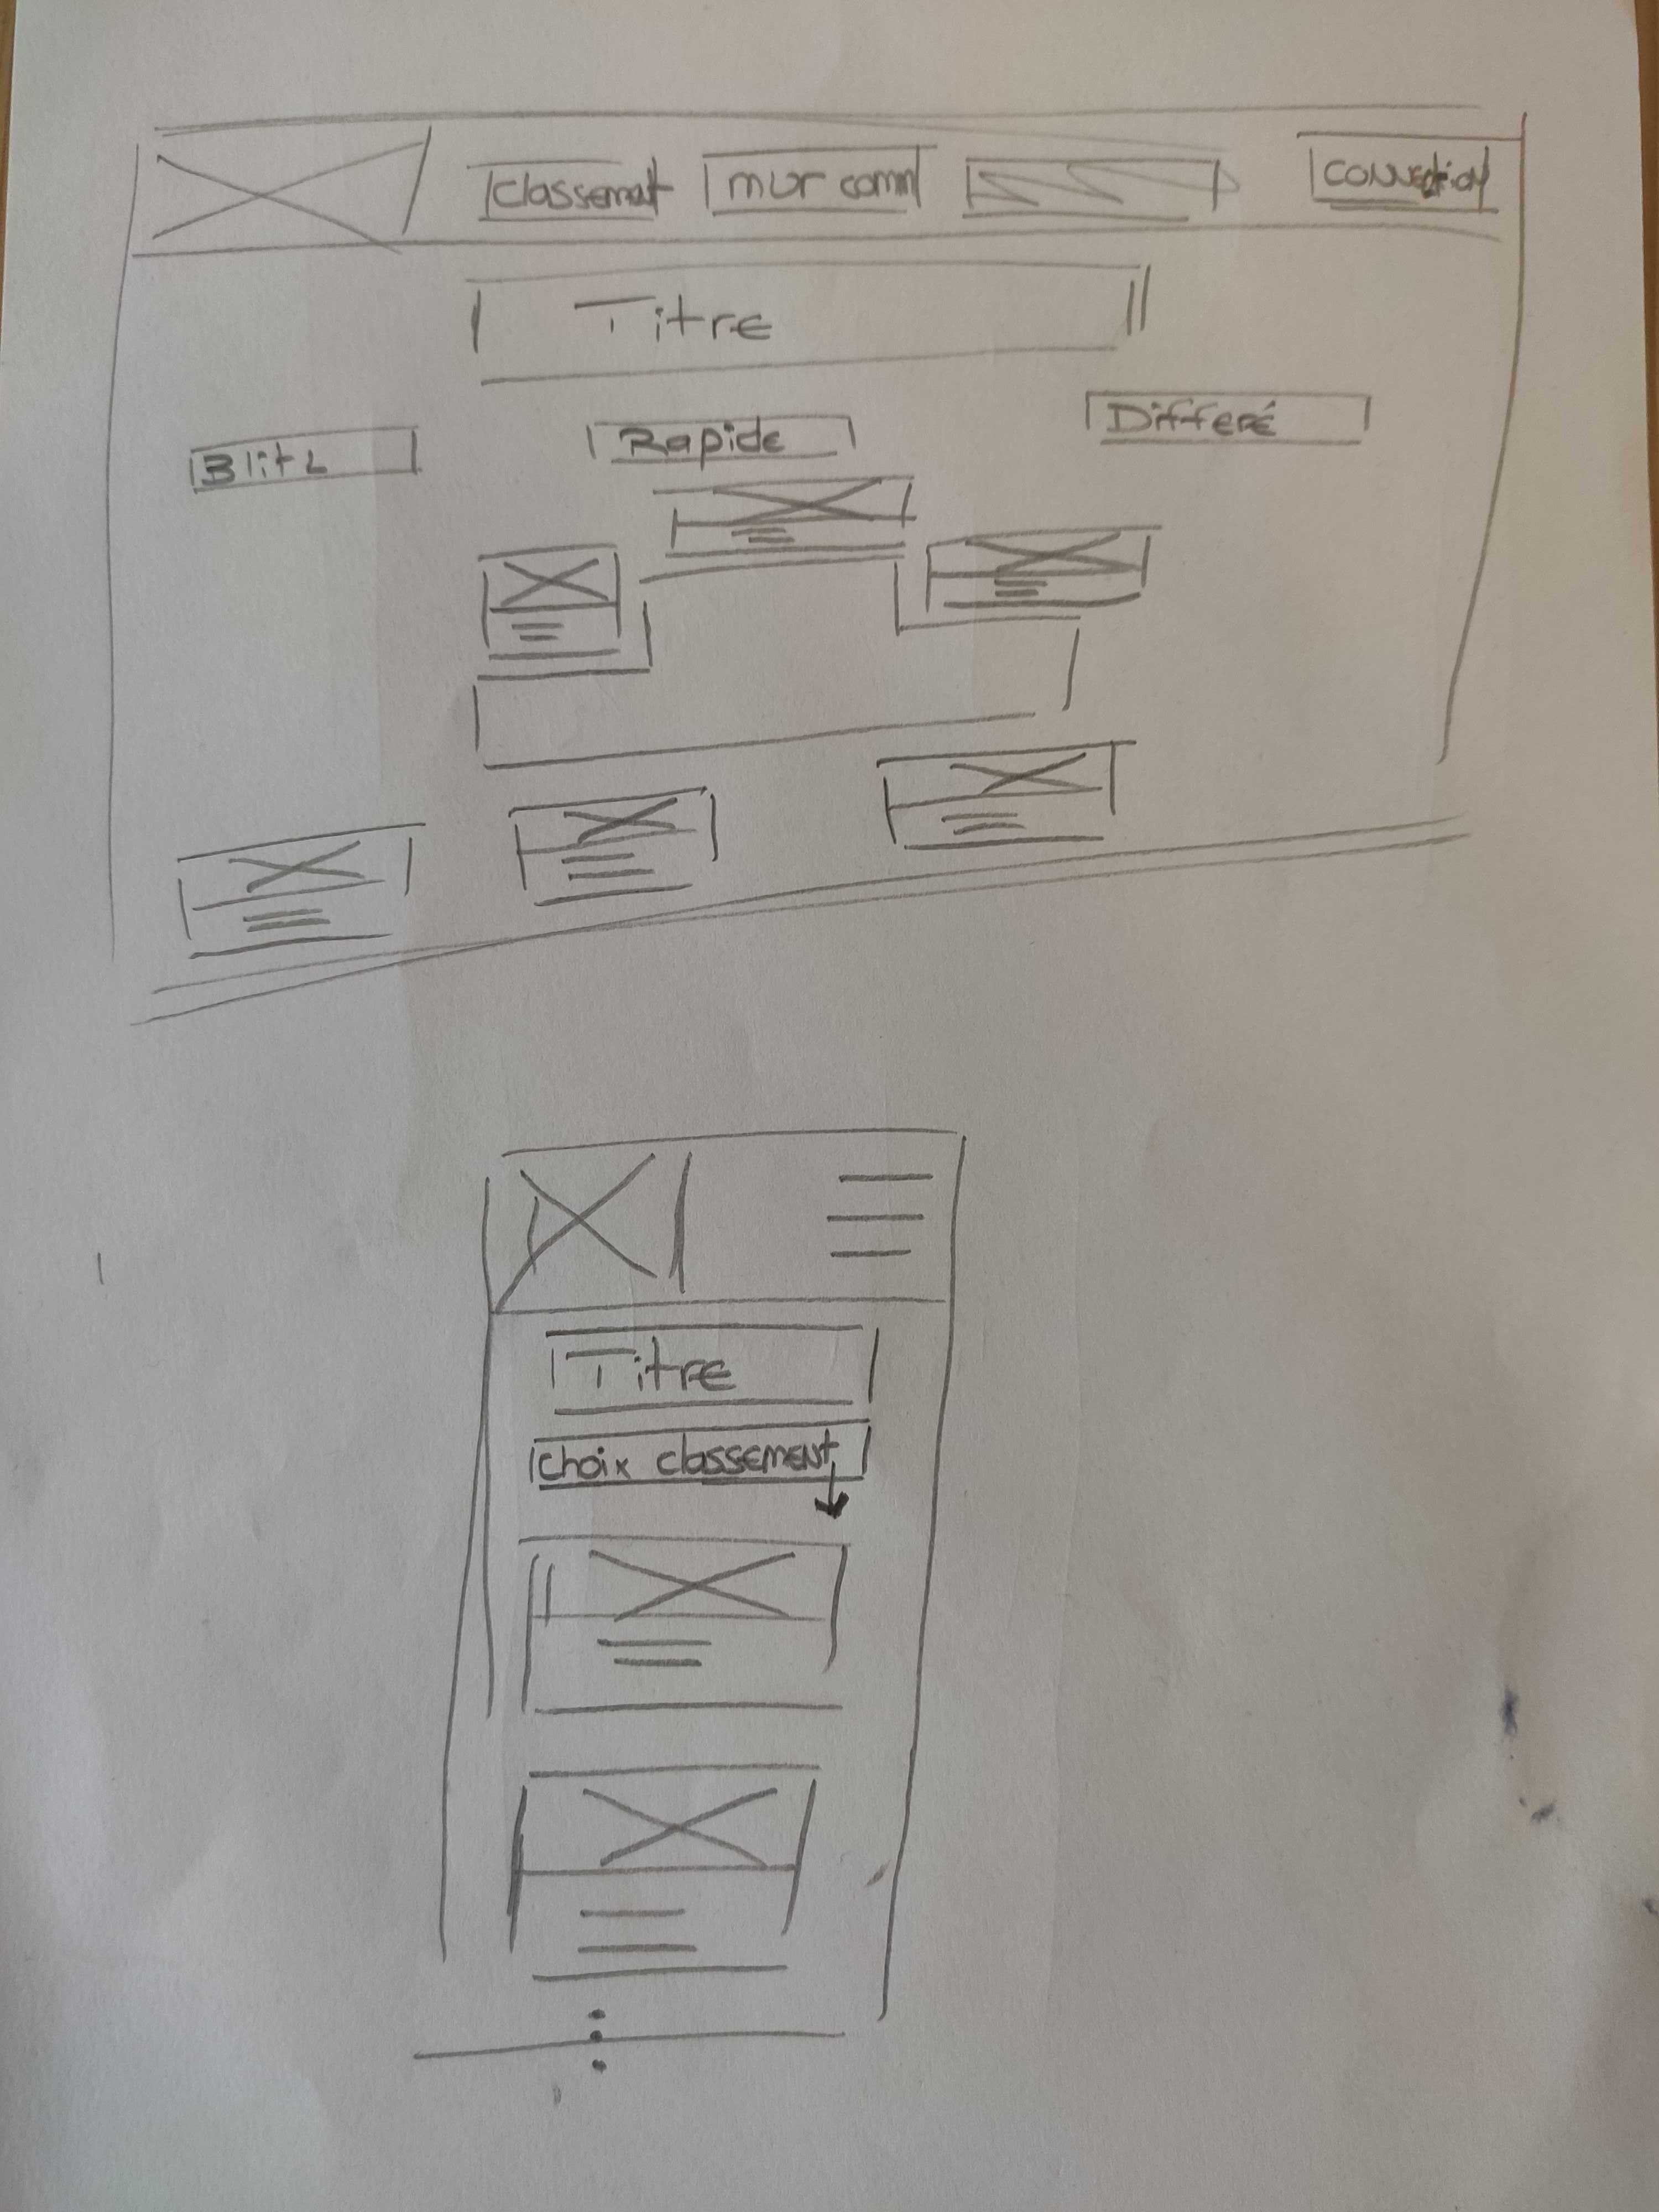 classement mur comm connection
Titre
Blitz Rapide Differé
Titre
choix classement